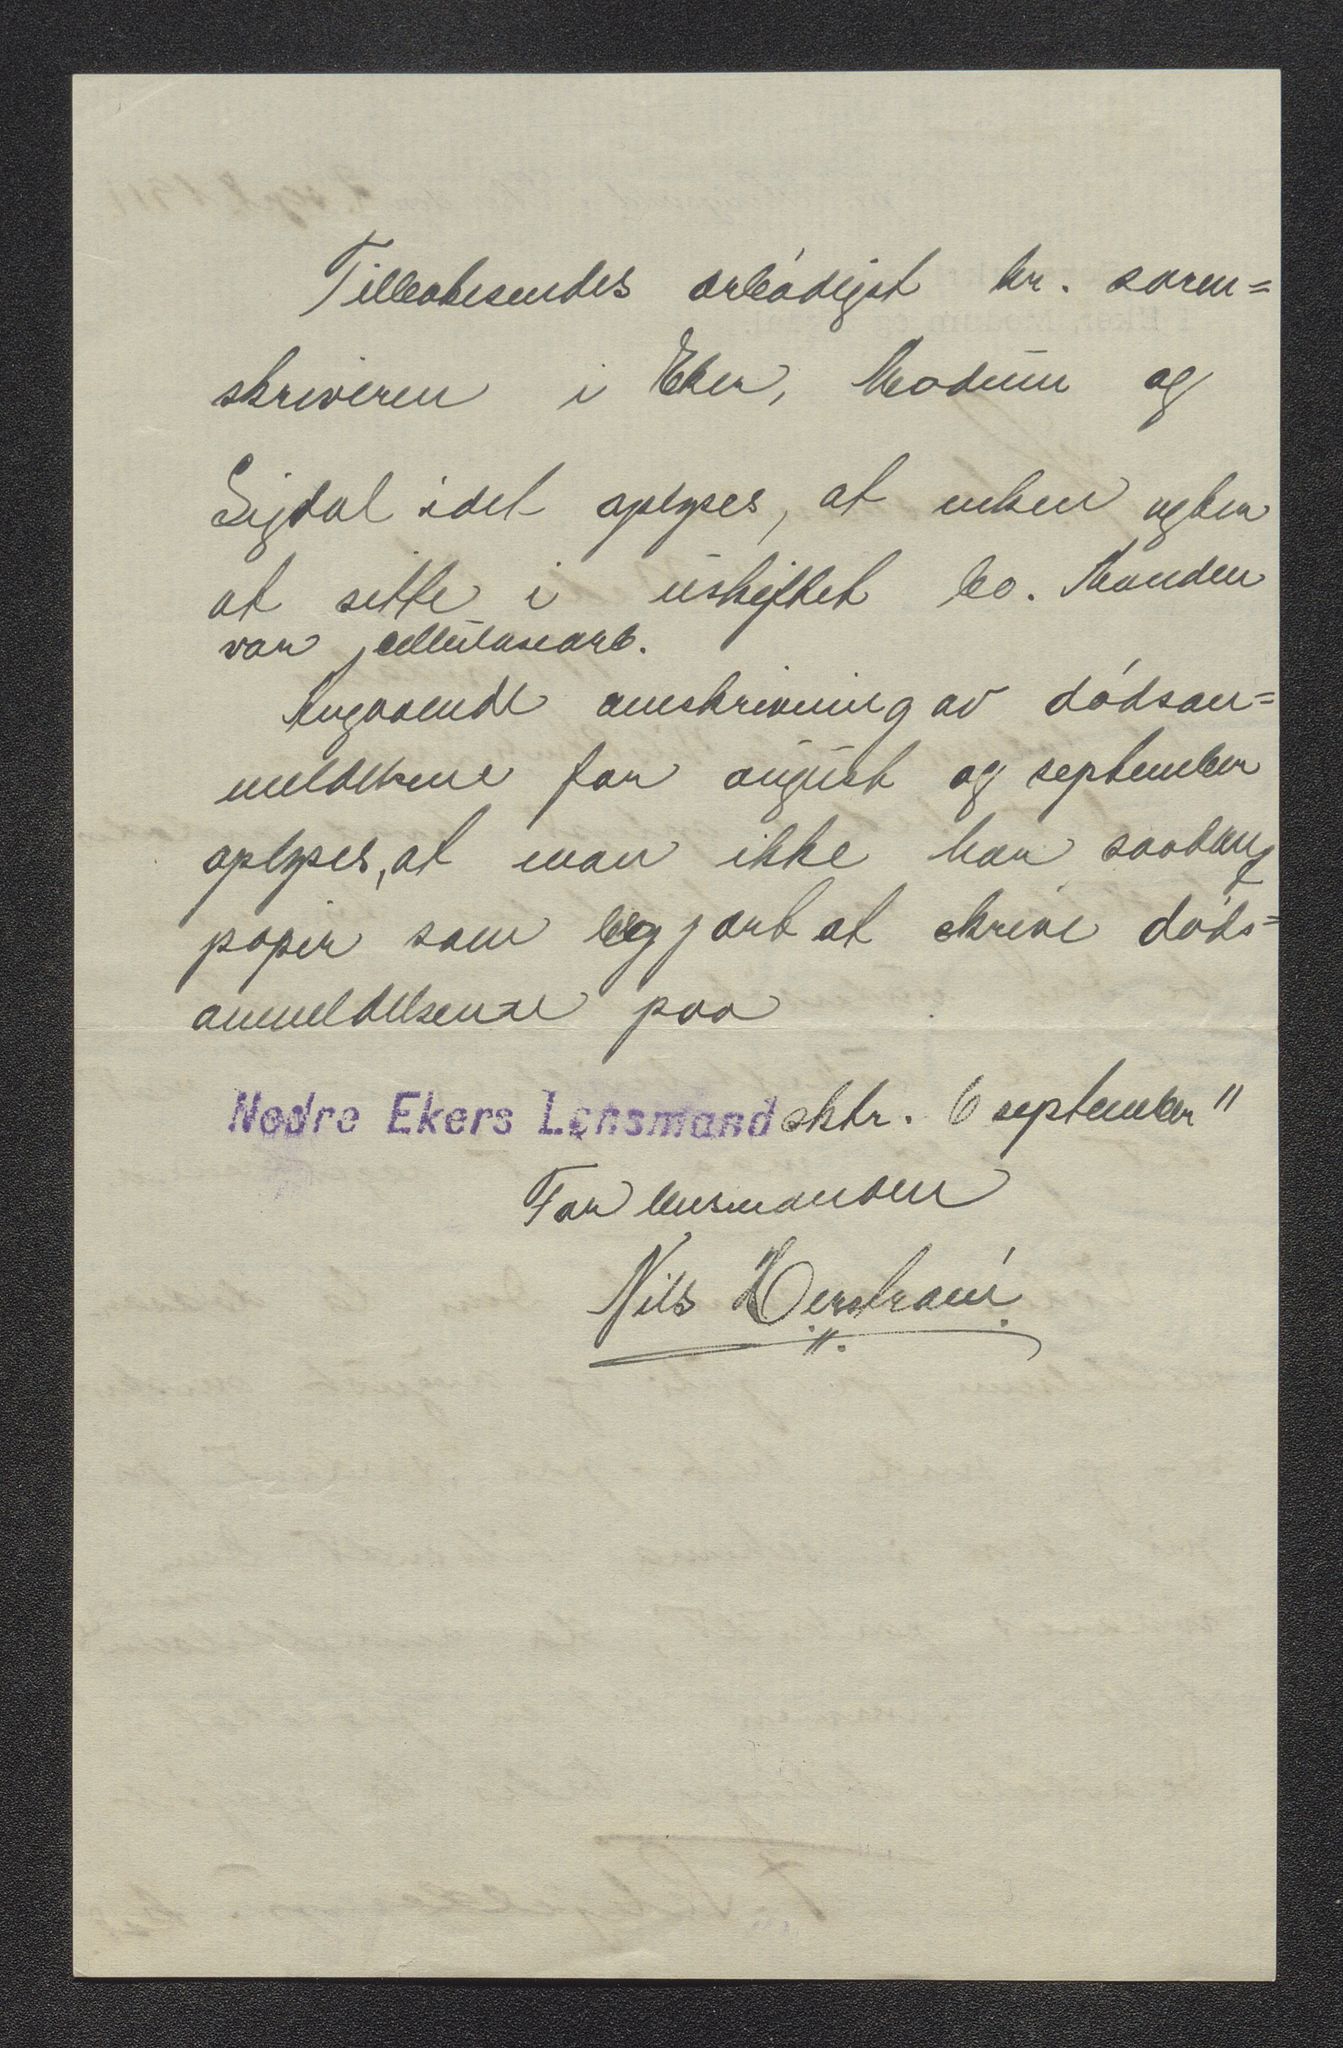 Tilbakesendes ærbødigst hr. soren=
skriveren i Eker, Modum og
Sigdal idet oplyses, at enken agter
at sitte i uskiftet bo. Manden
var cellulosearb.
Angaaende omskrivning av dødsan=
meldelsene for august og september
oplyses, at man ikke har saadant
papir som begjært at skrive døds=
anmeldelsene paa
Nedre Ekers Lensmandsktr. 6 september 11
For lensmanden
Nils